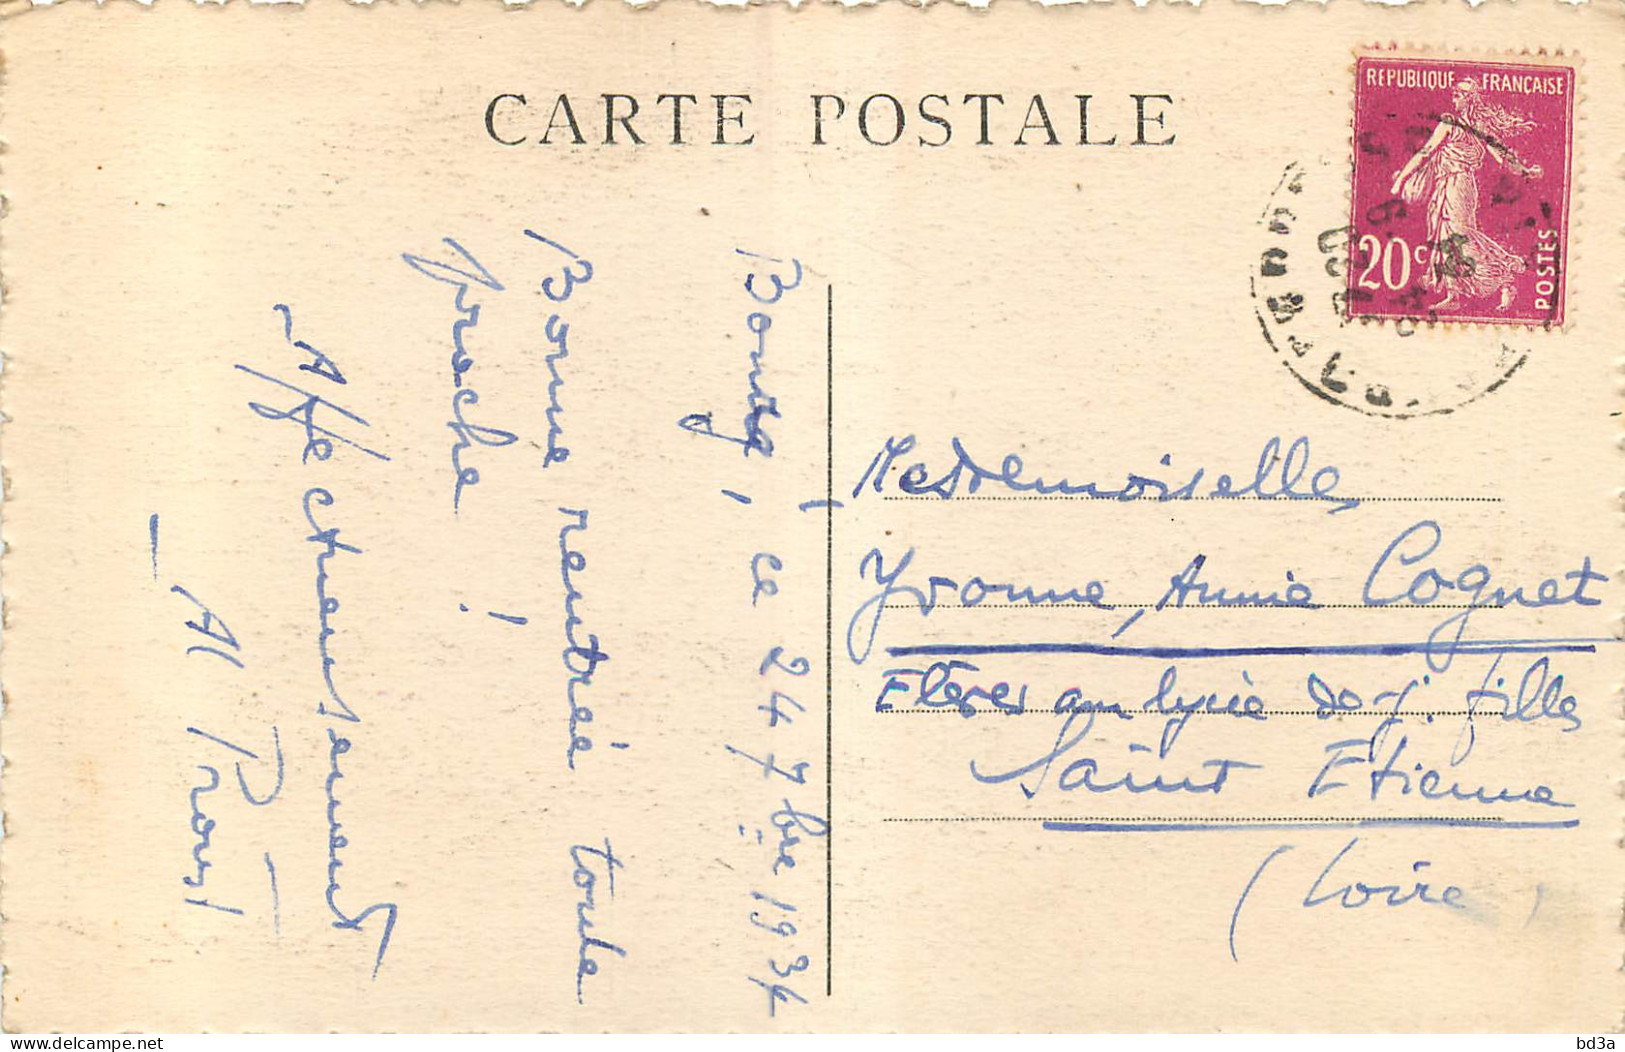 CARTE POSTALE
REPUBLIQUE FRANÇAISE
20c
POSTES
Bourg, ce 24 7bre 1934
Bonne rentrée toute
proche !
Affectueusement
Al Proust
Mesdemoiselles
Yvonne, Annie Cognet
Elèves au lycée de J. filles
Saint Etienne
(Loire)
bd3a